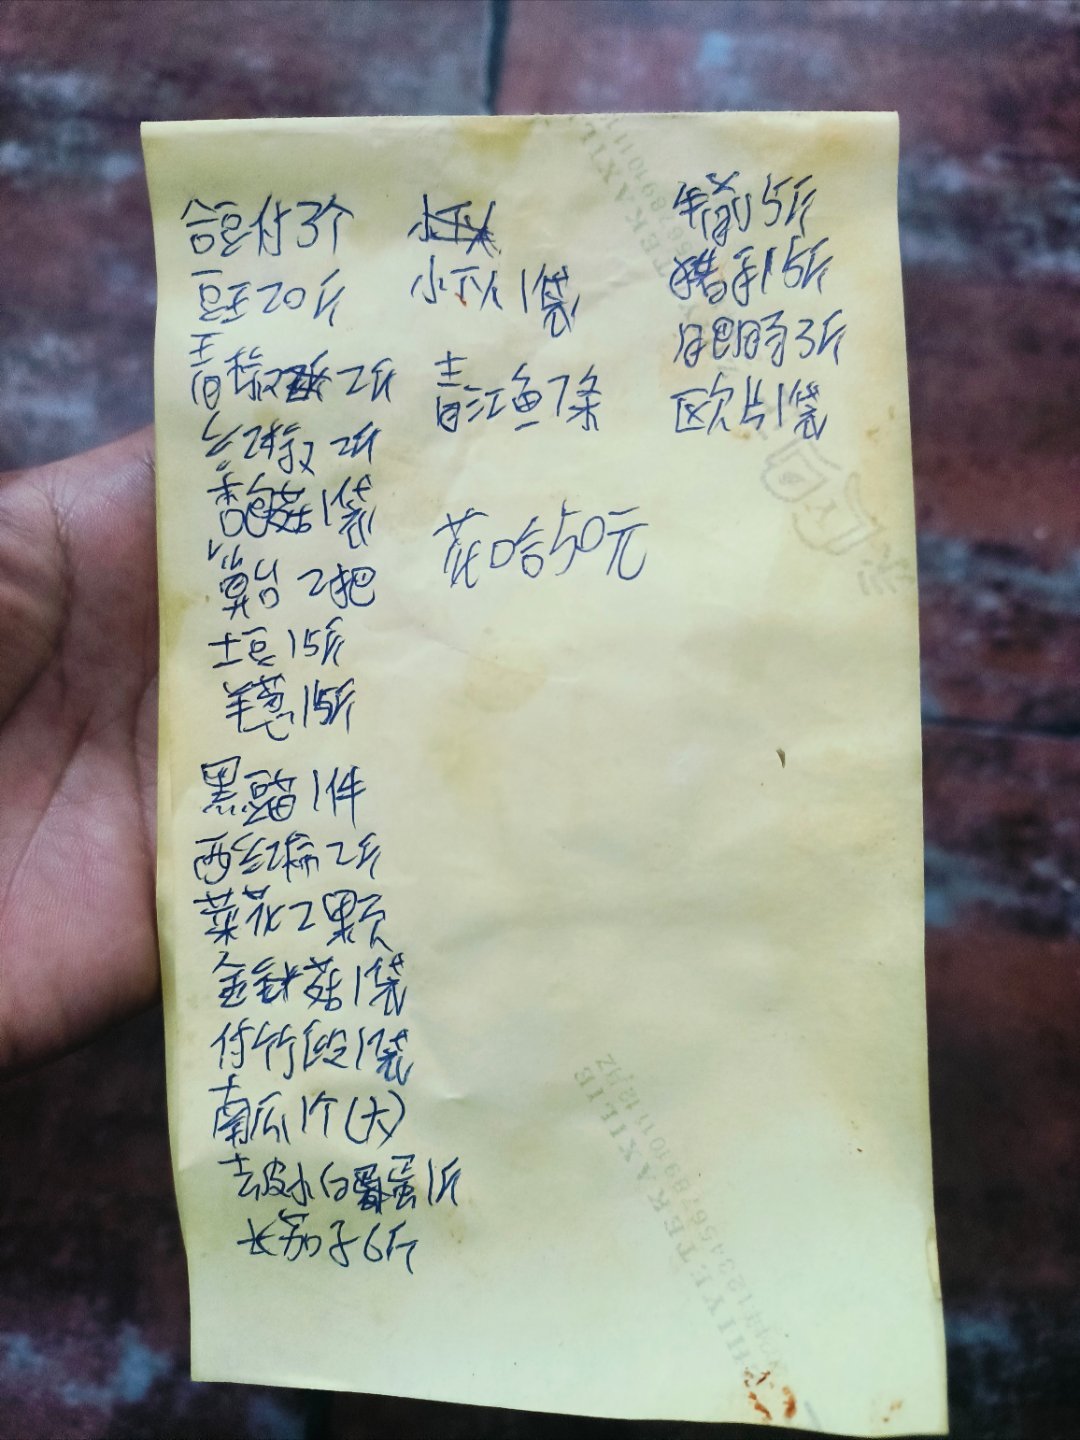 合豆付3个
豆王20斤
青菽 2斤
红菽 2斤
香菇1袋
算台 2把
土豆15斤
羊葱15斤
黑豆苗1件
西红柿 2斤
菜花2颗
金针菇1袋
付竹段1袋
南瓜1个(大)
去皮小白蛋1斤
长茄子6斤
小
小瓜1袋
青江鱼7条
花哈50元
牛前5斤
猪手15斤
肥肠3斤
区欠片1袋
TEKAXIL